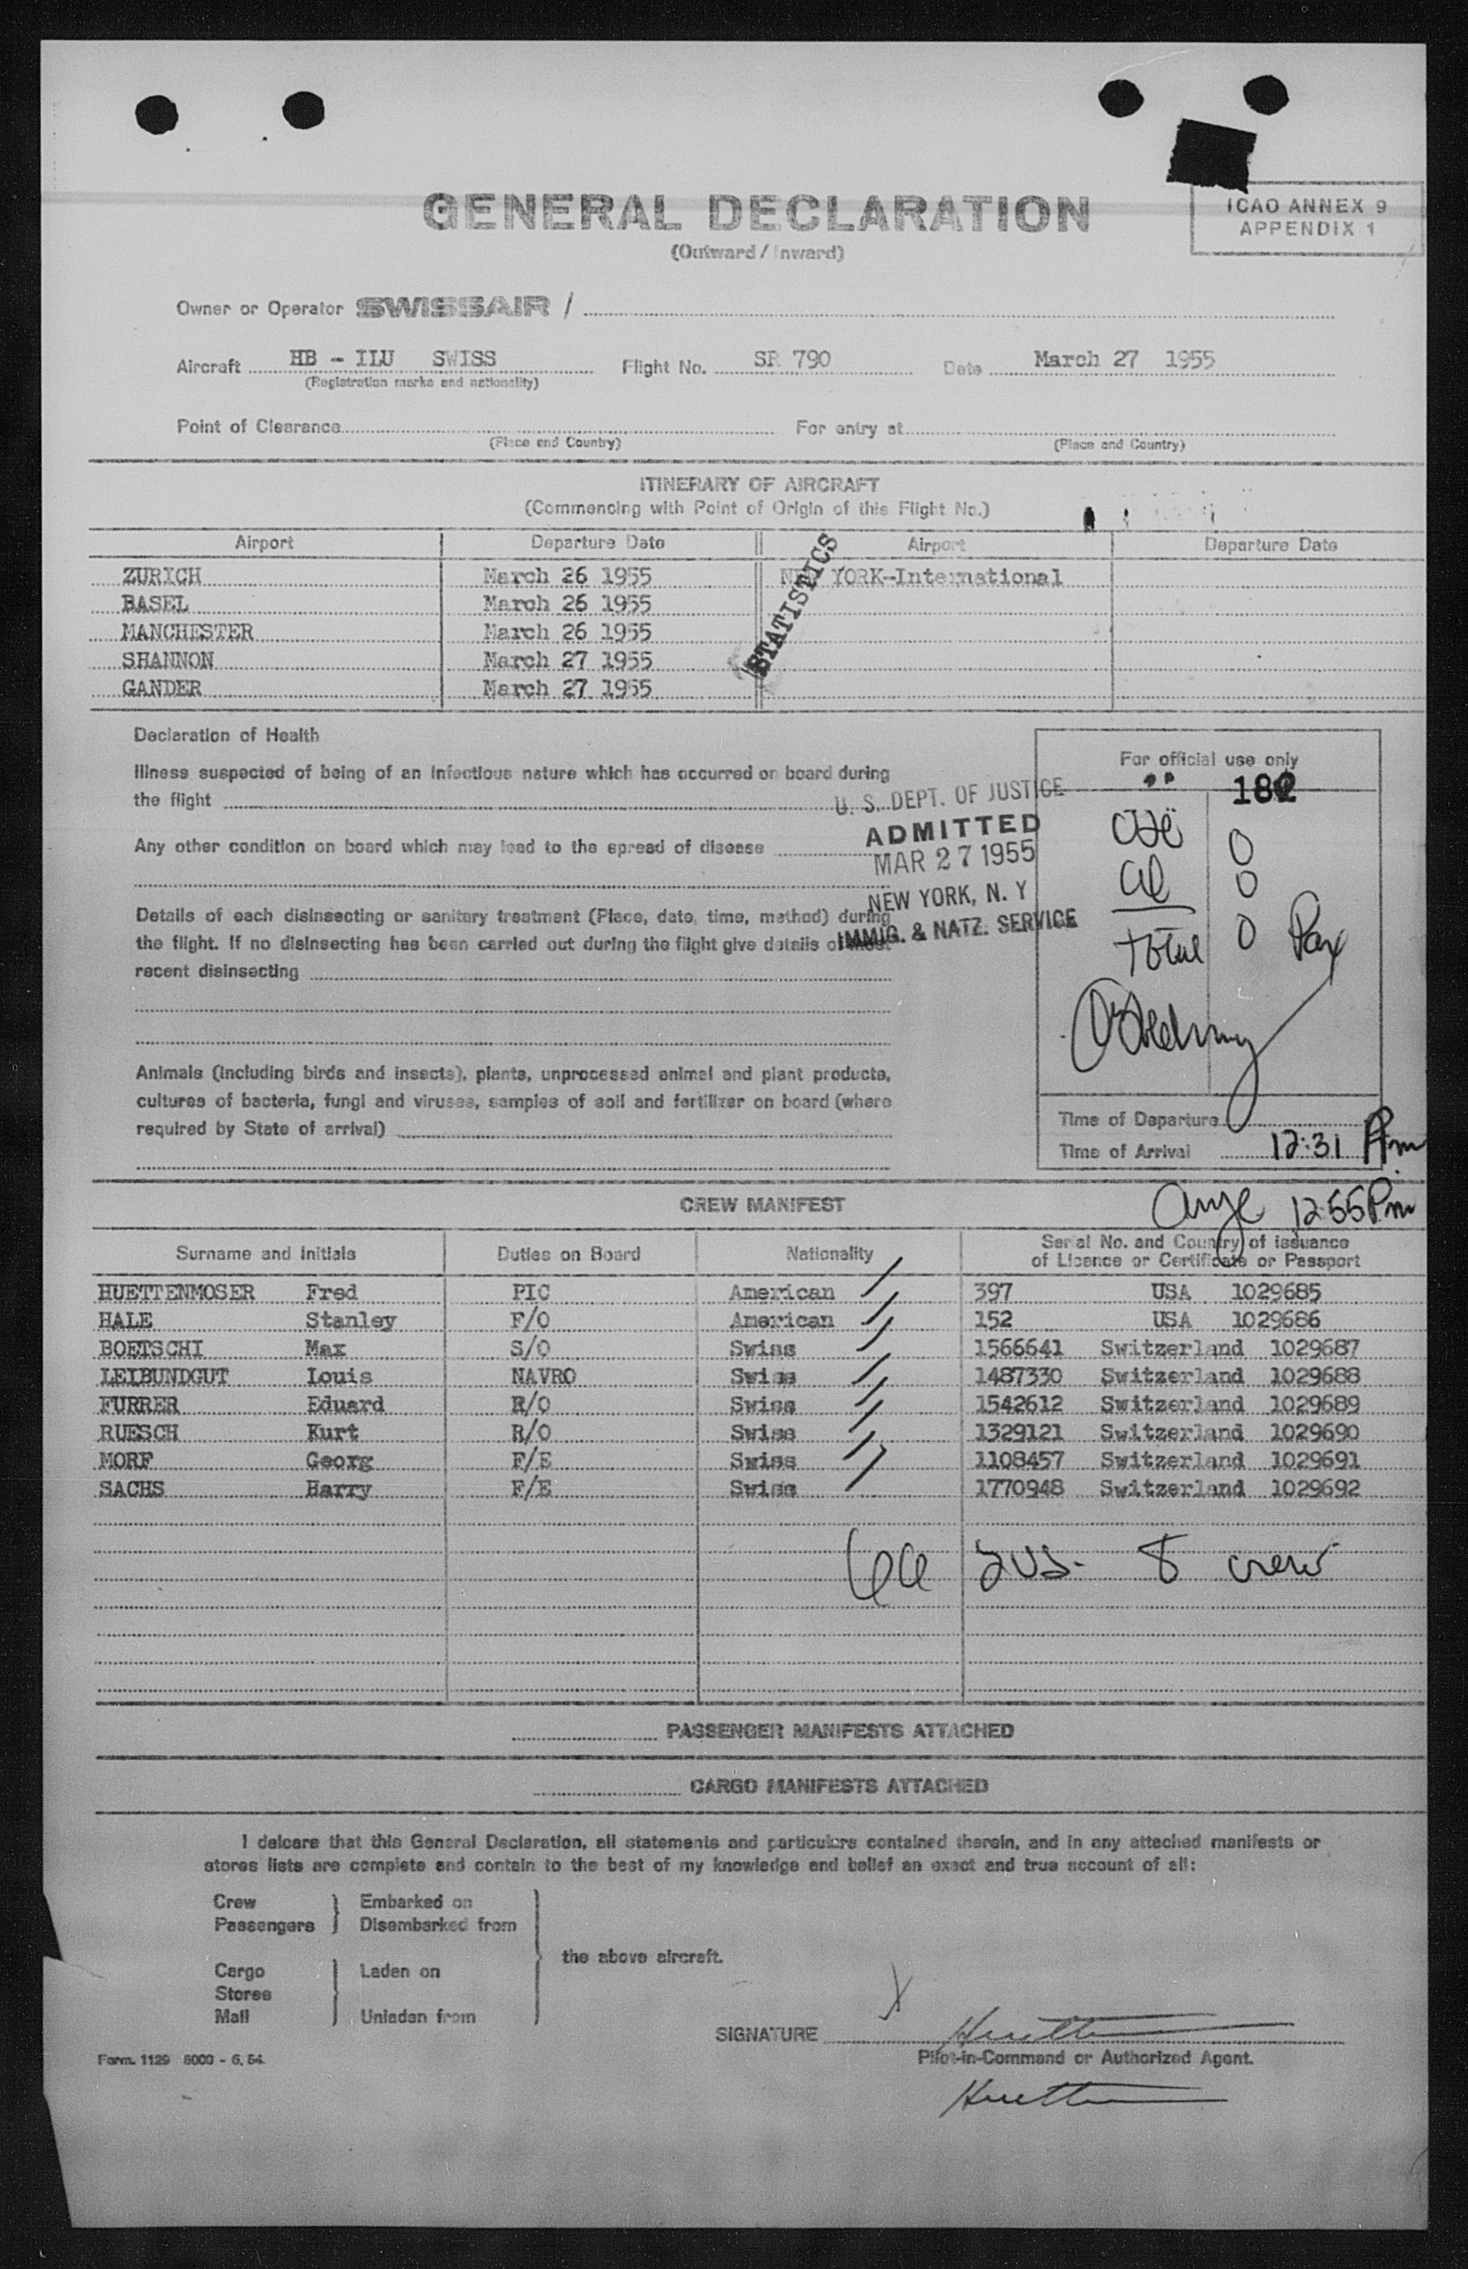 GENERAL DECLARATION
(Outward / Inward)
ICAO ANNEX 9
APPENDIX 1
Owner or Operator SWISSAIR /
Aircraft HB - ILU SWISS Flight No. SR 790 Date March 27 1955
(Registration marks and nationality)
Point of Clearance For entry at
(Place and Country) (Place and Country)
ITINERARY OF AIRCRAFT
(Commencing with Point of Origin of this Flight No.)
Airport Departure Date Airport Departure Date
ZURICH March 26 1955 NEW YORK-International
BASEL March 26 1955
MANCHESTER March 26 1955
SHANNON March 27 1955
GANDER March 27 1955
STATISTICS
Declaration of Health
Illness suspected of being of an infectious nature which has occurred on board during
the flight
Any other condition on board which may lead to the spread of disease
Details of each disinsecting or sanitary treatment (Place, date, time, method) during
the flight. If no disinsecting has been carried out during the flight give details of most
recent disinsecting
Animals (including birds and insects), plants, unprocessed animal and plant products,
cultures of bacteria, fungi and viruses, samples of soil and fertilizer on board (where
required by State of arrival)
U. S. DEPT. OF JUSTICE
ADMITTED
MAR 27 1955
NEW YORK, N. Y
IMMIG. & NATZ. SERVICE
For official use only
182
0
0
Total 0 Pax
Time of Departure
Time of Arrival 12:31 Pm
12:55 Pm
CREW MANIFEST
Surname and Initials Duties on Board Nationality Serial No. and Country of issuance
of Licence or Certificate or Passport
HUETTENMOSER Fred PIC American 397 USA 1029685
HALE Stanley F/O American 152 USA 1029686
BOETSCHI Max S/O Swiss 1566641 Switzerland 1029687
LEIBUNDGUT Louis NAVRO Swiss 1487330 Switzerland 1029688
FURRER Eduard R/O Swiss 1542612 Switzerland 1029689
RUESCH Kurt R/O Swiss 1329121 Switzerland 1029690
MORF Georg F/E Swiss 1108457 Switzerland 1029691
SACHS Harry F/E Swiss 1770948 Switzerland 1029692
8 crew
PASSENGER MANIFESTS ATTACHED
CARGO MANIFESTS ATTACHED
I delcare that this General Declaration, all statements and particulars contained therein, and in any attached manifests or
stores lists are complete and contain to the best of my knowledge and belief an exact and true account of all:
Crew Embarked on
Passengers Disembarked from
the above aircraft.
Cargo Laden on
Stores
Mail Unladen from
X
SIGNATURE
Pilot-in-Command or Authorized Agent.
Form. 1129 8000 - 6. 54.